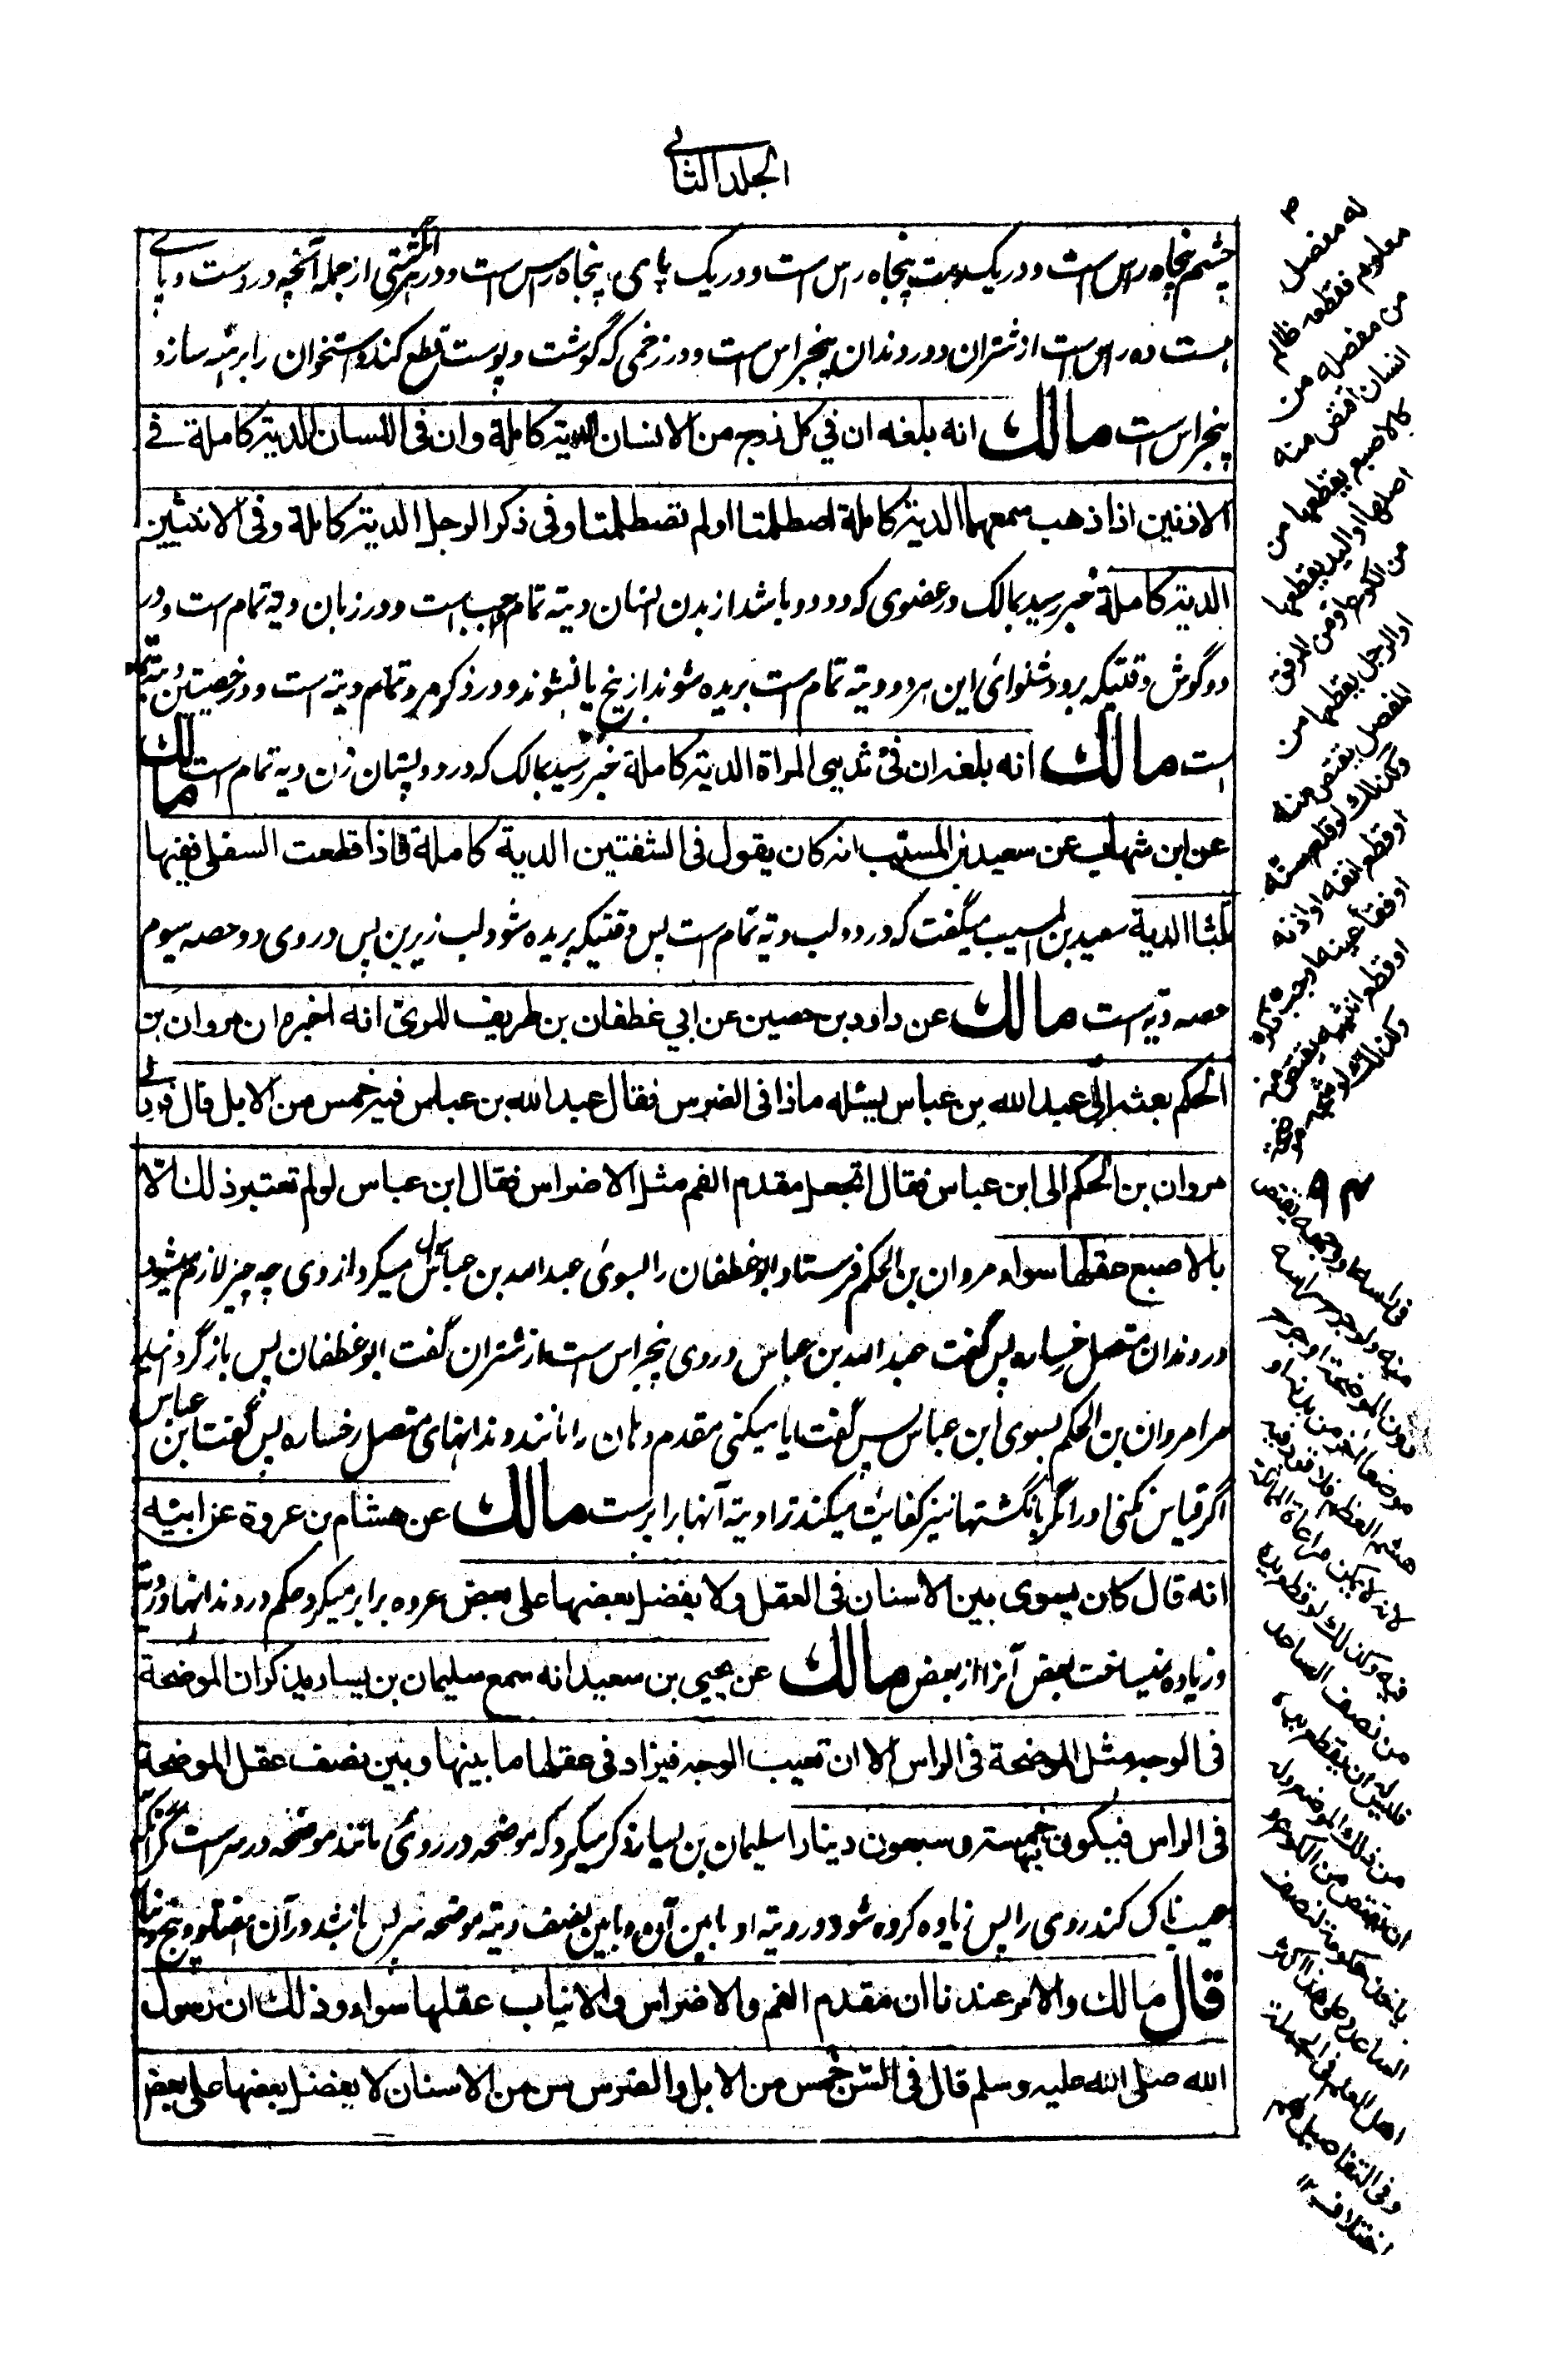 الجلد الثانی
چشم پنجاه راس است و در یک دست پنجاه راس است و در یک پای پنجاه راس است و در هر انگشتی از جمله آنچه در دست و پای
هست ده راس است از شتران و در دندان پنجراس است و در زخمی که گوشت و پوست قطع کند و استخوان را برهنه سازد
پنجراس است مالك انه بلغه ان في كل زوج من الانسان الدية كاملة وان فى اللسان الدية كاملة فے
الاذنين اذا ذهب سمعهما الدية كاملة اصطلمتا او لم تصطلمتا وفى ذكر الرجل الدية كاملة وفى الانثيين
الدية كاملة خبر رسید بمالک در عضوی که دو دو باشد از بدن انسان دیته تمام واجب است و در زبان دیه تمام است و در
دو گوش وقتیکه برود شنوائ این هر دو دیته تمام است بریده شوند از بیخ یا نشوند و در ذکر مرد تمام دیته است و در خصیتین دیته تمام
است مالك انه بلغه ان فى ثديى المراة الدية كاملة خبر رسید بمالک که در دو پستان زن دیه تمام است مالك
عن ابن شهاب عن سعيد بن المسيب انه كان يقول فى الشفتين الدية كاملة فاذا قطعت السفلى ففيها
ثلثا الدية سعید بن المسیب میگفت که در دو لب دیه تمام است پس وقتیکه بریده شود لب زیرین پس در وی دو حصه سیوم
حصه دیه است مالك عن داود بن حصين عن ابي غطفان بن طريف المرى انه اخبره ان مروان بن
الحكم بعثه الى عبد الله بن عباس يسئله ماذا فى الضرس فقال عبد الله بن عباس فيه خمس من الابل قال فردنى
مروان بن الحكم الى ابن عباس فقال اتجعل مقدم الفم مثل الاضراس فقال ابن عباس لو لم تعتبر ذلك الا
بالاصبع عقلها سواء مروان بن الحکم فرستاد ابو غطفان را بسوئ عبد الله بن عباس سوال میکرد از وی چه چیز لازم میشود
در دندان متصل رخساره پس گفت عبد الله بن عباس در وی پنجراس است از شتران گفت ابو غطفان پس باز گردانید
مرا مروان بن الحکم بسوی ابن عباس پس گفت ایا میکنی مقدم دهان را مانند دندانهای متصل رخساره پس گفت ابن عباس
اگر قیاس نکنی او را مگر بانگشتها نیز کفایت میکند ترا دیته آنها برابر ست مالك عن هشام بن عروة عن ابيه
انه قال كان يسوى بين الاسنان فى العقل ولا يفضل بعضها على بعض عروه برابر میکرد حکم در دندانها در دیته
و زیاده نمیساخت بعض آنرا از بعض مالك عن يحيى بن سعيد انه سمع سليمان بن يسار يذكر ان الموضحة
فى الوجه مثل الموضحة فى الراس الا ان تعيب الوجه فيزاد فى عقلها ما بينها وبين نصف عقل الموضحة
فى الراس فيكون فيها خمسة وسبعون دينارا سلیمان بن یسار ذکر میکرد که موضحه در روئ مانند موضحه در سر است مگر آنکه
عیبناک کند روی را پس زیاده کرده شود در دیته او ما بین آن و ما بین نصف دیته موضحه سر پس باشد در آن هفتاد و پنج دینار
قال مالك والامر عندنا ان مقدم الفم والاضراس والانياب عقلها سواء وذلك ان رسول
الله صلى الله عليه وسلم قال فى السن خمس من الابل والضرس سن من الاسنان لا يفضل بعضها على بعض
له مفصل
معلوم فقطعه ظالم
من مفصله من
انسان اقتص منه
كالاصبع يقطعها من
اصلها او اليد يقطعها
من الكوع او من المرفق
او الرجل يقطعها من
المفصل يقتص منه
وكذلك لو قلع سنه
او قطع انفه او اذنه
او فقأ عينه او جب ذكره
او قطع انثييه يقتص منه
وكذلك لو شجه موضحة
فى راسه او وجهه يقتص
منه ولو جرح راسه
دون الموضحة او جرح
موضعا اخر من بدنه او
هشم العظم فلا قود فيه
لانه لا يمكن مراعاة المماثلة
فيه وكذلك لو قطع يده
من نصف الساعد
فليس له ان يقطع يده
من ذلك الموضع وله
ان يقتص من الكوع و
ياخذ حكومة لنصف
الساعد وعلى هذا اكثر
اهل العلم فى الجملة
وفى التفاصيل لهم
اختلاف ١٢